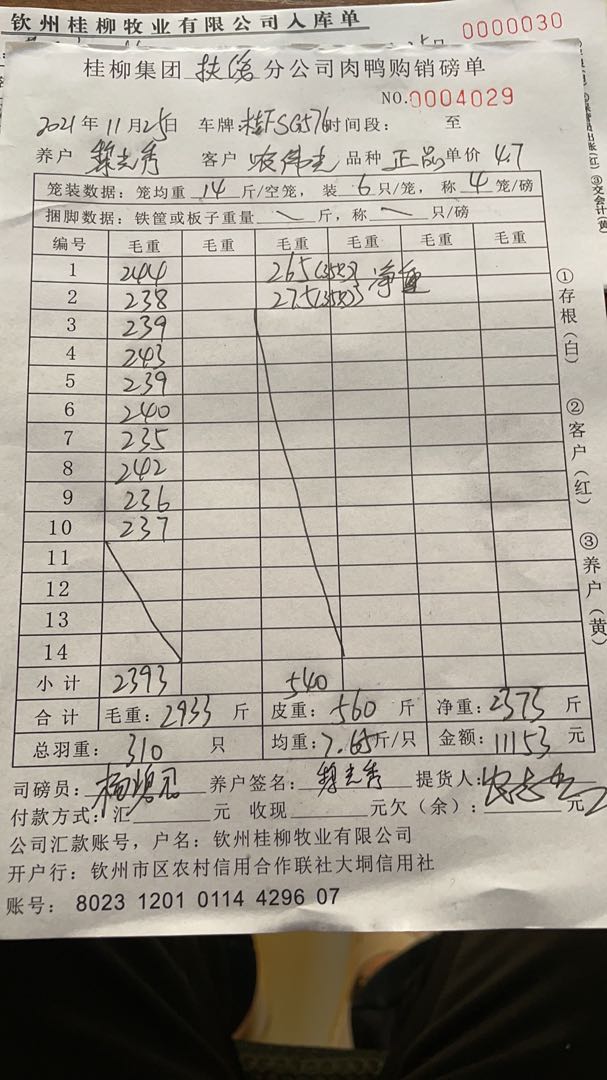 钦州桂柳牧业有限公司入库单
0000030
桂柳集团 扶绥 分公司肉鸭购销磅单
NO.0004029
2021年11月25日 车牌:桂FSG576 时间段: 至
养户 客户 农伟 品种 正品 单价 4.7
笼装数据:笼均重 14 斤/空笼,装 6 只/笼,称 4 笼/磅
捆脚数据:铁筐或板子重量 \ 斤,称 \ 只/磅
编号 毛重 毛重 毛重 毛重 毛重 毛重
1 244 265(35只) 净重
2 238 275(35只)
3 239
4 243
5 239
6 240
7 235
8 242
9 236
10 237
11
12
13
14
小计 2393 540
合计 毛重:2933 斤 皮重:560 斤 净重:2373 斤
总羽重:310 只 均重:7.65斤/只 金额:11153 元
司磅员: 养户签名: 提货人:
付款方式:汇 元 收现 元欠(余): 元
公司汇款账号,户名:钦州桂柳牧业有限公司
开户行:钦州市区农村信用合作联社大垌信用社
账号:8023 1201 0114 4296 07
①存根(白)
②客户(红)
③养户(黄)
③交会计(黄)